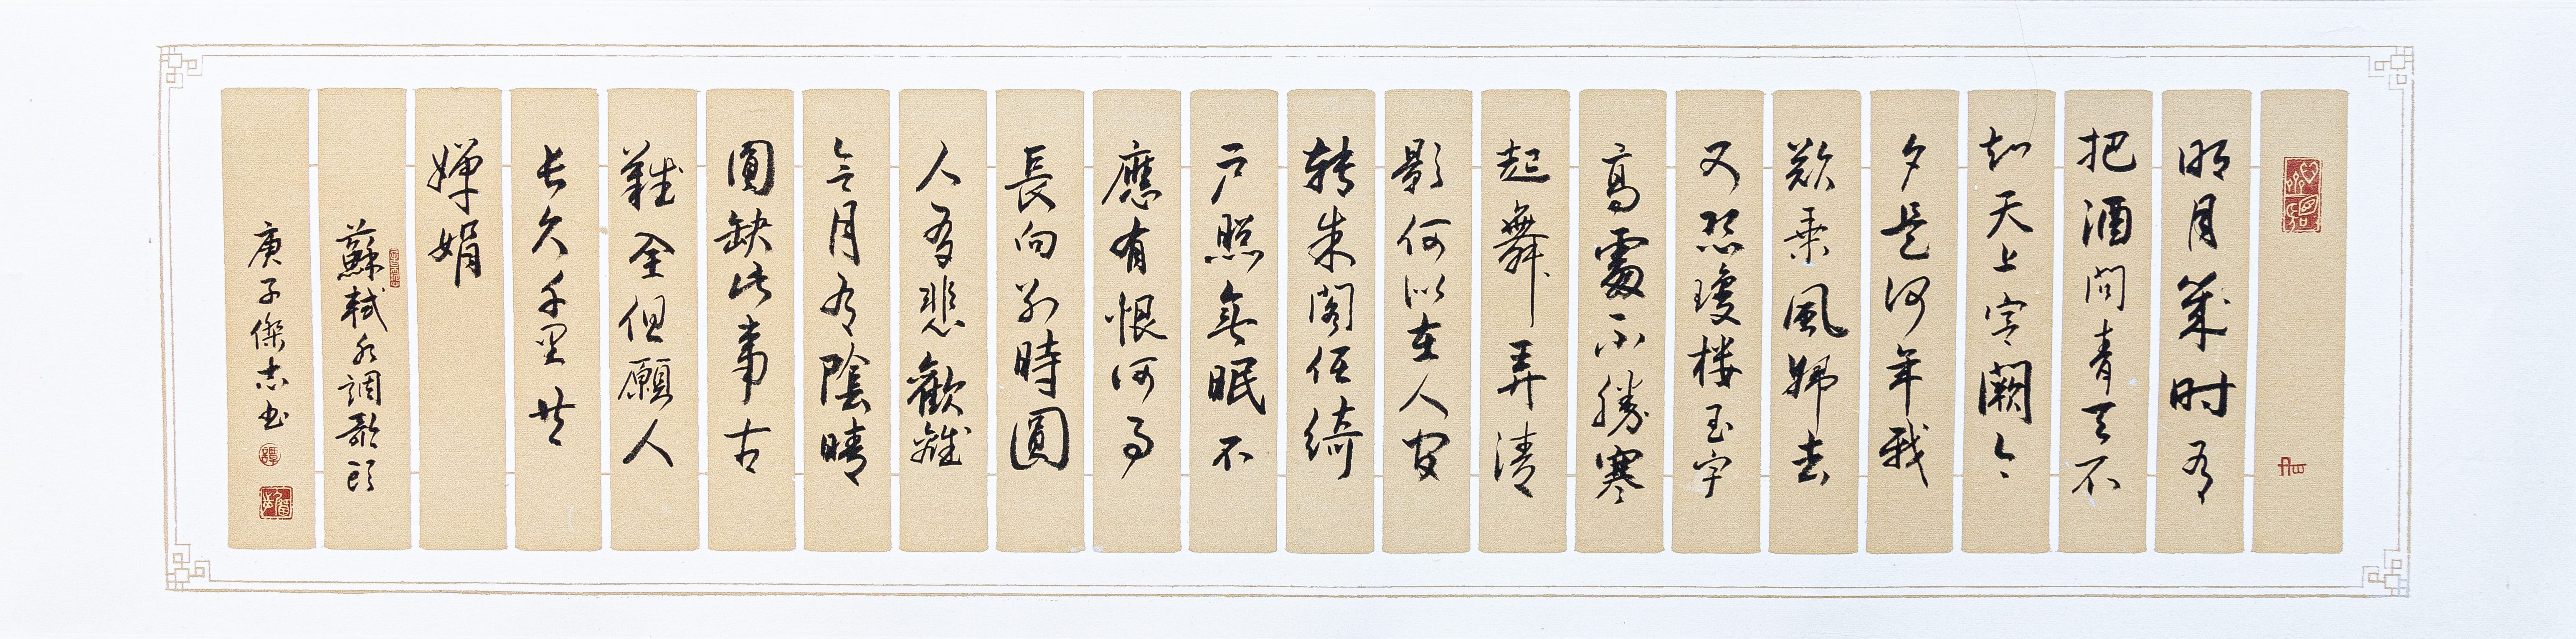 明月幾时有
把酒問青天不
知天上宫闕今
夕是何年我
欲乘風歸去
又恐瓊楼玉宇
高處不勝寒
起舞弄清
影何似在人间
转朱閣低綺
户照無眠不
應有恨何事
長向别時圓
人有悲歡離
合月有陰晴
圓缺此事古
難全但願人
长久千里共
婵娟
蘇軾水調歌头
庚子傑志书